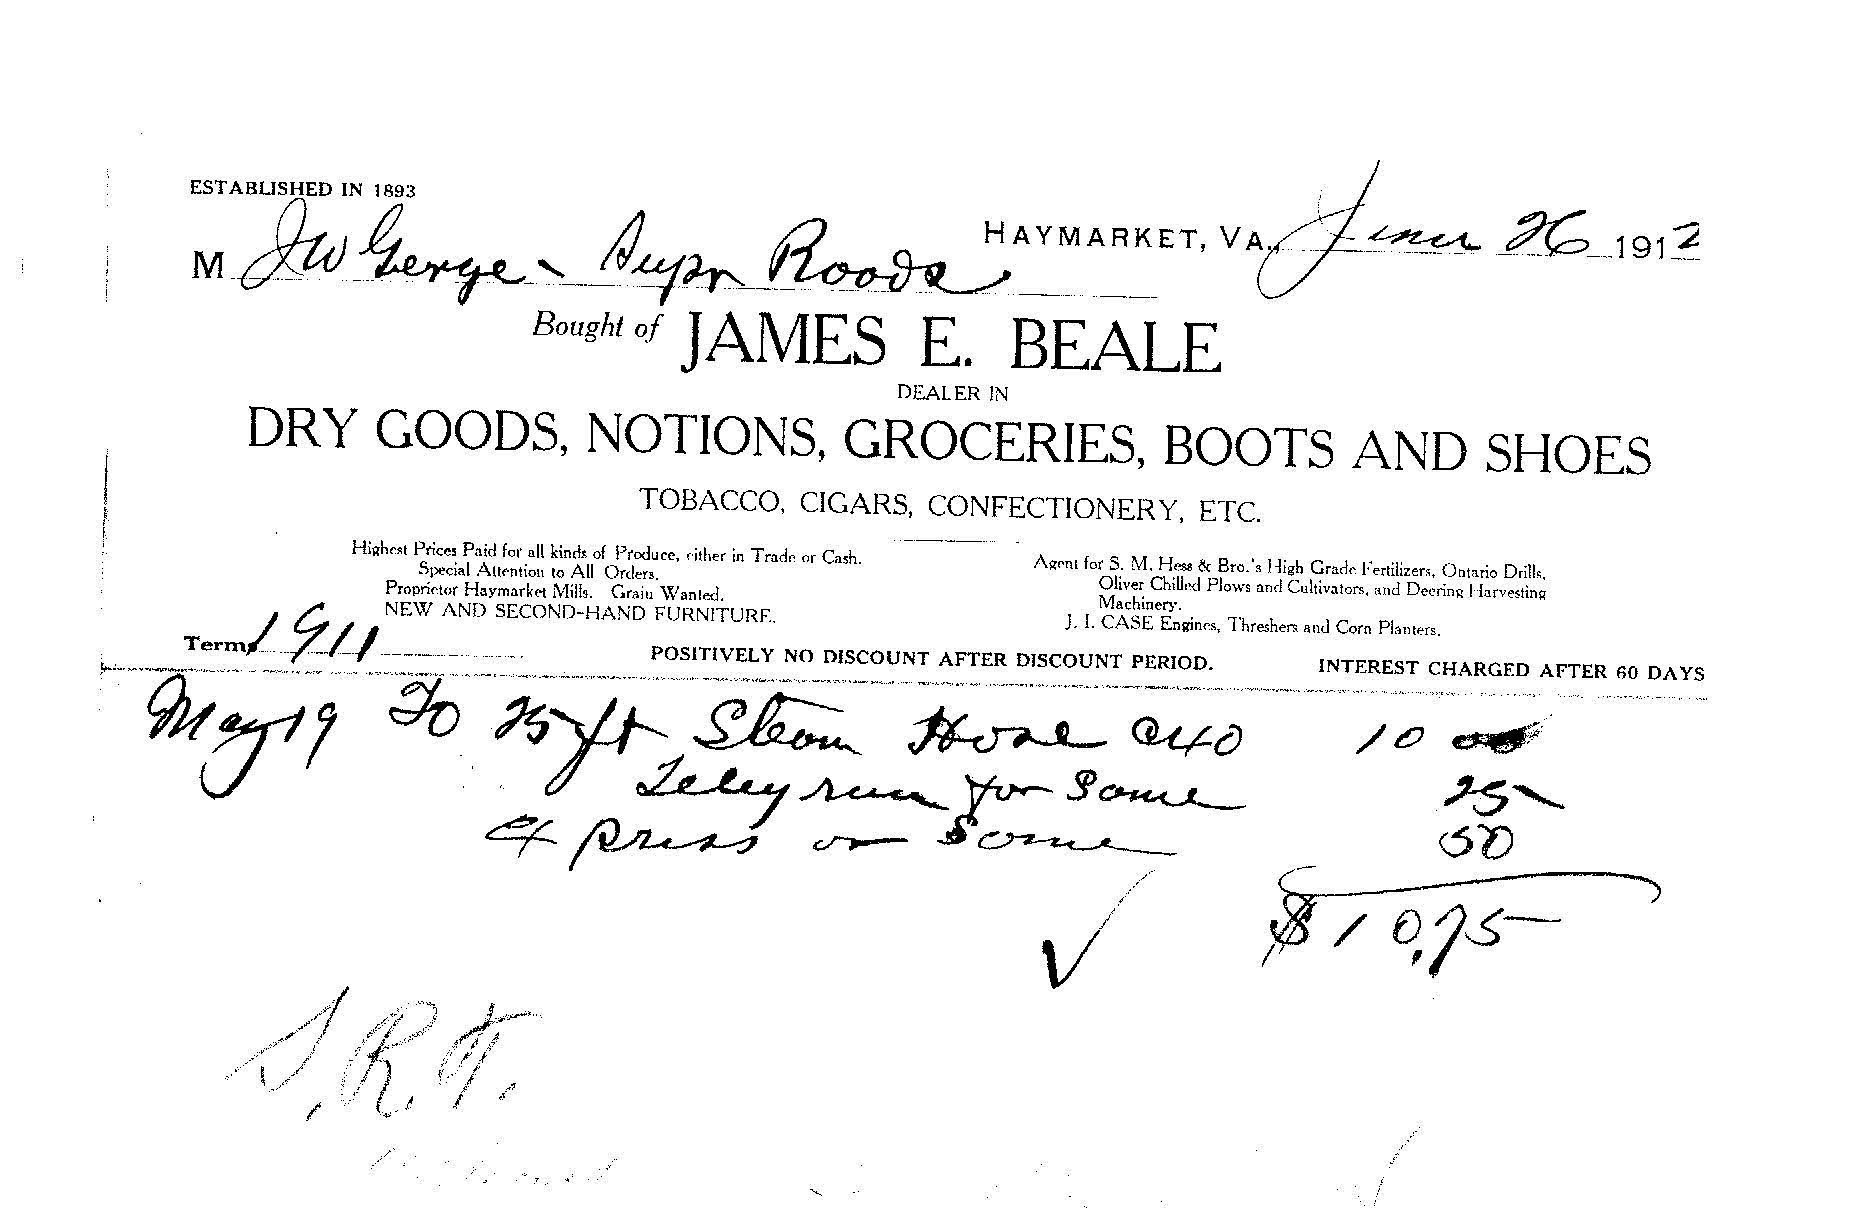 ESTABLISHED IN 1893
HAYMARKET, VA., June 26 1912
M J W Gerge - Supr Roads
Bought of JAMES E. BEALE
DEALER IN
DRY GOODS, NOTIONS, GROCERIES, BOOTS AND SHOES
TOBACCO, CIGARS, CONFECTIONERY, ETC.
Highest Prices Paid for all kinds of Produce, either in Trade or Cash.
Special Attention to All Orders.
Proprietor Haymarket Mills. Grain Wanted.
NEW AND SECOND-HAND FURNITURE.
Agent for S. M. Hess & Bro.'s High Grade Fertilizers, Ontario Drills,
Oliver Chilled Plows and Cultivators, and Deering Harvesting
Machinery.
J. I. CASE Engines, Threshers and Corn Planters.
Terms 1911
POSITIVELY NO DISCOUNT AFTER DISCOUNT PERIOD. INTEREST CHARGED AFTER 60 DAYS
May 19 To 25 ft Steam Hose @ 40 10 00
Telegram for Same 25
express on Same 50
$10.75